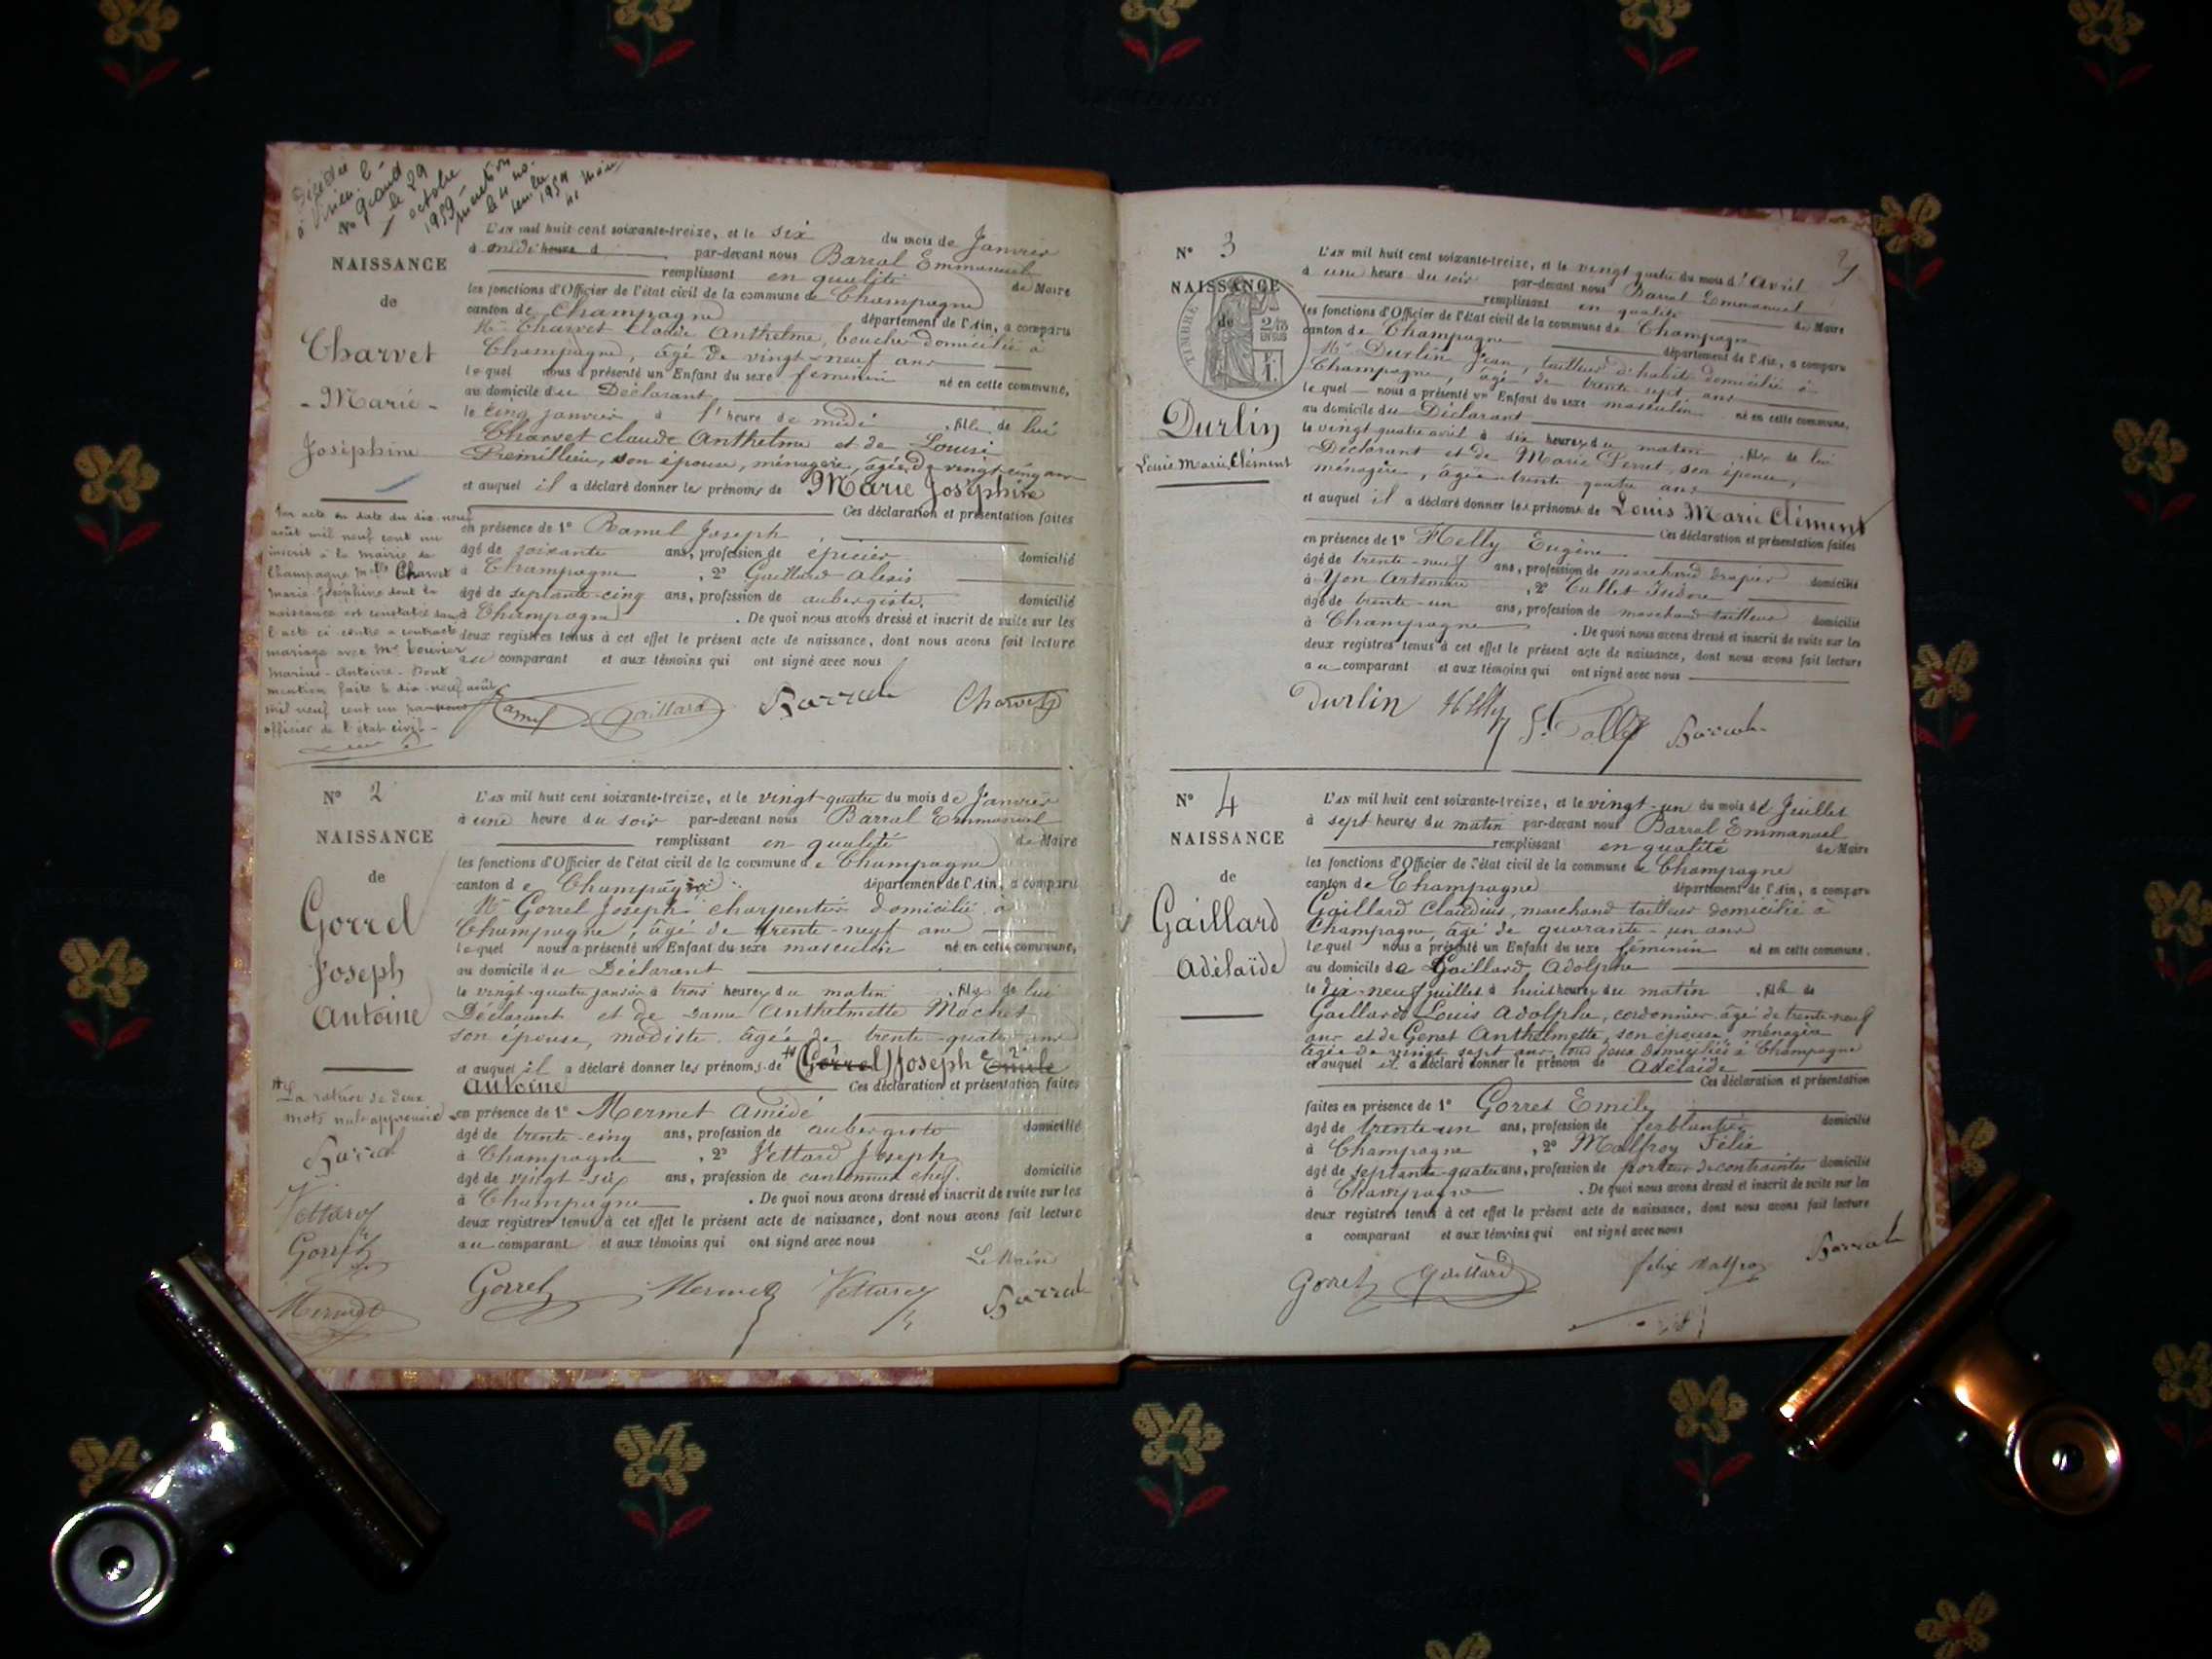 Décédée
à
le 29
octobre
1959
N°
NAISSANCE
de
Charvet
- Marie -
Joséphine
L'an mil huit cent soixante-treize, et le six du mois de Janvier
à midi heure d par-devant nous Barral Emmanuel
remplissant en qualité de Maire
les fonctions d'Officier de l'état civil de la commune de Champagne
canton de Champagne département de l'Ain, a comparu
Mr Charvet Claude Anthelme, boucher domicilié à
Champagne, âgé de vingt-neuf ans
lequel nous a présenté un Enfant du sexe féminin né en cette commune,
au domicile du Déclarant
le cinq janvier à l'heure de midi, fille de lui
Charvet Claude Anthelme et de Louise
Premillieu, son épouse, ménagère, âgée de vingt-cinq ans
et auquel il a déclaré donner les prénoms de Marie Joséphine
Ces déclaration et présentation faites
en présence de 1° Ramel Joseph
âgé de soixante ans, profession de épicier domicilié
à Champagne, 2° Gaillard Alexis
âgé de septante-cinq ans, profession de aubergiste, domicilié
à Champagne. De quoi nous avons dressé et inscrit de suite sur les
deux registres tenus à cet effet le présent acte de naissance, dont nous avons fait lecture
au comparant et aux témoins qui ont signé avec nous
Ramel Gaillard Barral Charvet
Par acte en date du dix-neuf
août mil neuf cent un
inscrit à la mairie de
Champagne Mlle Charvet
Marie Joséphine dont la
naissance est constatée dans
l'acte ci contre a contracté
mariage avec Mr Bouvier
Marius-Antoine. Dont
mention faite le dix-neuf août
mil neuf cent un par nous
officier de l'état civil.-
N° 2
NAISSANCE
de
Gorrel
Joseph
Antoine
L'an mil huit cent soixante-treize, et le vingt-quatre du mois de Janvier
à une heure du soir par-devant nous Barral Emmanuel
remplissant en qualité de Maire
les fonctions d'Officier de l'état civil de la commune de Champagne
canton de Champagne département de l'Ain, a comparu
Mr Gorrel Joseph charpentier domicilié à
Champagne, âgé de trente-neuf ans
lequel nous a présenté un Enfant du sexe masculin né en cette commune,
au domicile du Déclarant
le vingt-quatre janvier à trois heures du matin, fils de lui
Déclarant et de dame Anthelmette Mochet
son épouse, modiste, âgée de trente-quatre ans
et auquel il a déclaré donner les prénoms de (Gorrel) Joseph Emile
Antoine Ces déclaration et présentation faites
en présence de 1° Mermet Amidé
âgé de trente-cinq ans, profession de aubergiste domicilié
à Champagne, 2° Vettard Joseph
âgé de vingt-six ans, profession de cantonnier chef. domicilié
à Champagne. De quoi nous avons dressé et inscrit de suite sur les
deux registres tenus à cet effet le présent acte de naissance, dont nous avons fait lecture
au comparant et aux témoins qui ont signé avec nous
Le Maire
Gorrel Mermet Vettard Barral
La rature de deux
mots nuls approuvé
Barral
Vettard
Gorrel
Mermet
N° 3
NAISSANCE
de
TIMBRE
Durlin
Louis Marie Clément
L'an mil huit cent soixante-treize, et le vingt quatre du mois d'Avril
à une heure du soir par-devant nous Barral Emmanuel
remplissant en qualité de Maire
les fonctions d'Officier de l'état civil de la commune de Champagne
canton de Champagne département de l'Ain, a comparu
Mr Durlin Jean, tailleur d'habits domicilié à
Champagne, âgé de trente-sept ans
lequel nous a présenté un Enfant du sexe masculin né en cette commune,
au domicile du Déclarant
le vingt quatre avril à dix heures du matin, fils de lui
Déclarant et de Marie Perret, son épouse,
ménagère, âgée trente quatre ans
et auquel il a déclaré donner les prénoms de Louis Marie Clément
Ces déclaration et présentation faites
en présence de 1° Helly Eugène
âgé de trente-neuf ans, profession de marchand drapier domicilié
à Yon Artemare, 2° Tullet Isidore
âgé de trente-un ans, profession de marchand tailleur domicilié
à Champagne. De quoi nous avons dressé et inscrit de suite sur les
deux registres tenus à cet effet le présent acte de naissance, dont nous avons fait lecture
au comparant et aux témoins qui ont signé avec nous
Durlin Helly Barral
N° 4
NAISSANCE
de
Gaillard
Adélaïde
L'an mil huit cent soixante-treize, et le vingt-un du mois de Juillet
à sept heures du matin par-devant nous Barral Emmanuel
remplissant en qualité de Maire
les fonctions d'Officier de l'état civil de la commune de Champagne
canton de Champagne département de l'Ain, a comparu
Gaillard Claudius, marchand tailleur domicilié à
Champagne âgé de quarante-un ans
lequel nous a présenté un Enfant du sexe féminin né en cette commune,
au domicile de Gaillard Adolphe
le dix-neuf juillet à huit heures du matin, fille de
Gaillard Louis Adolphe, cordonnier âgé de trente-neuf
ans et de Genet Anthelmette, son épouse, ménagère
âgée de vingt sept ans, tous deux domiciliés à Champagne
et auquel il a déclaré donner le prénom de Adélaïde
Ces déclaration et présentation
faites en présence de 1° Gorret Emile
âgé de trente-un ans, profession de ferblantier domicilié
à Champagne, 2° Malfroy Félix
âgé de septante-quatre ans, profession de porteur de contraintes domicilié
à Champagne. De quoi nous avons dressé et inscrit de suite sur les
deux registres tenus à cet effet le présent acte de naissance, dont nous avons fait lecture
a comparant et aux témoins qui ont signé avec nous
Gorret Gaillard félix Malfroy Barral